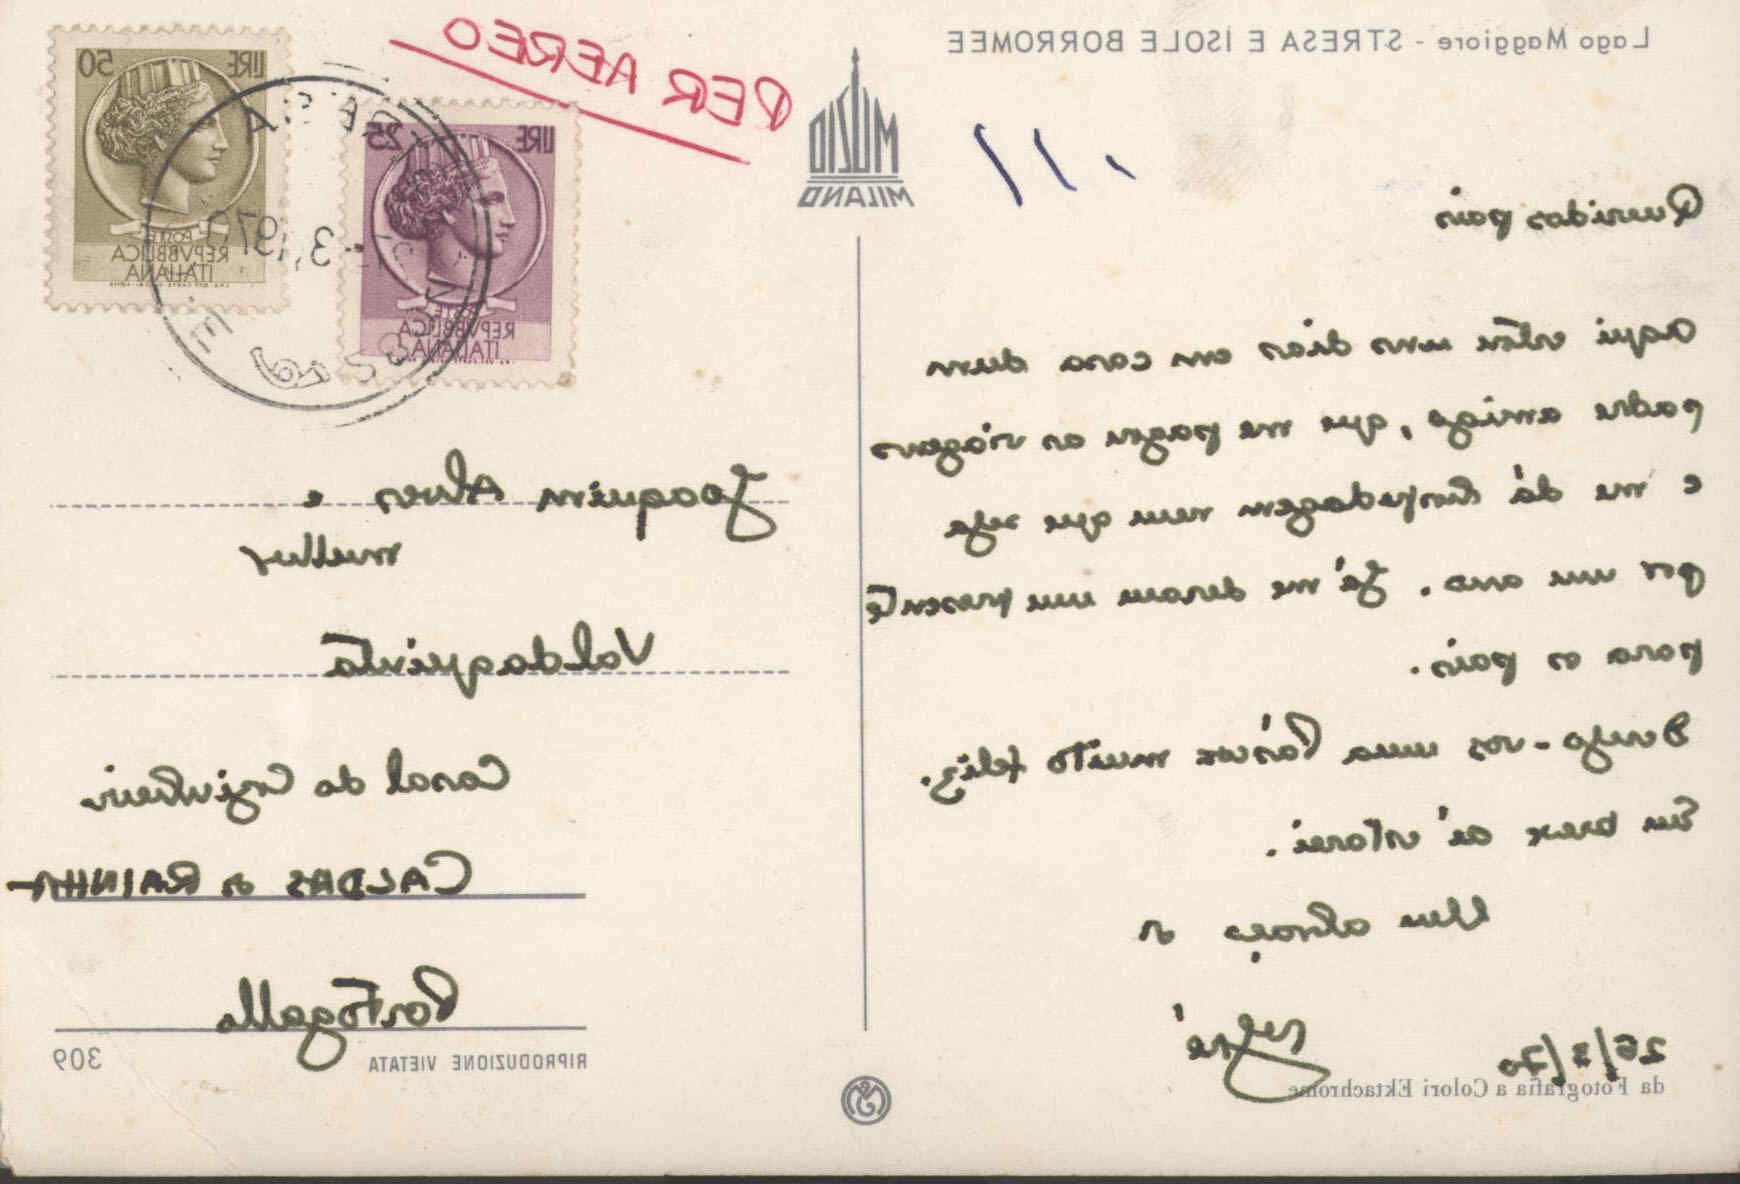 Lago Maggiore - STRESA E ISOLE BORROMEE
Queridos pais
Aqui estou uns dias em casa dum
padre amigo, que me pagou as viagens
e me dá hospedagem
por um ano. Já me deram um presente
para os pais.
Desejo-vos uma Páscoa muito feliz.
Em breve aí estarei.
Um abraço
26/3/70
da Fotografia a Colori Ektachrome
MUZIO
MILANO
PER AEREO
LIRE 50
POSTE
REPVBBLICA
ITALIANA
LIRE 25
POSTE
REPVBBLICA
ITALIANA
3.197
Joaquim Alves e
mulher
Valdaquinta
Casal da
CALDAS da RAINHA
Portogallo
RIPRODUZIONE VIETATA
309